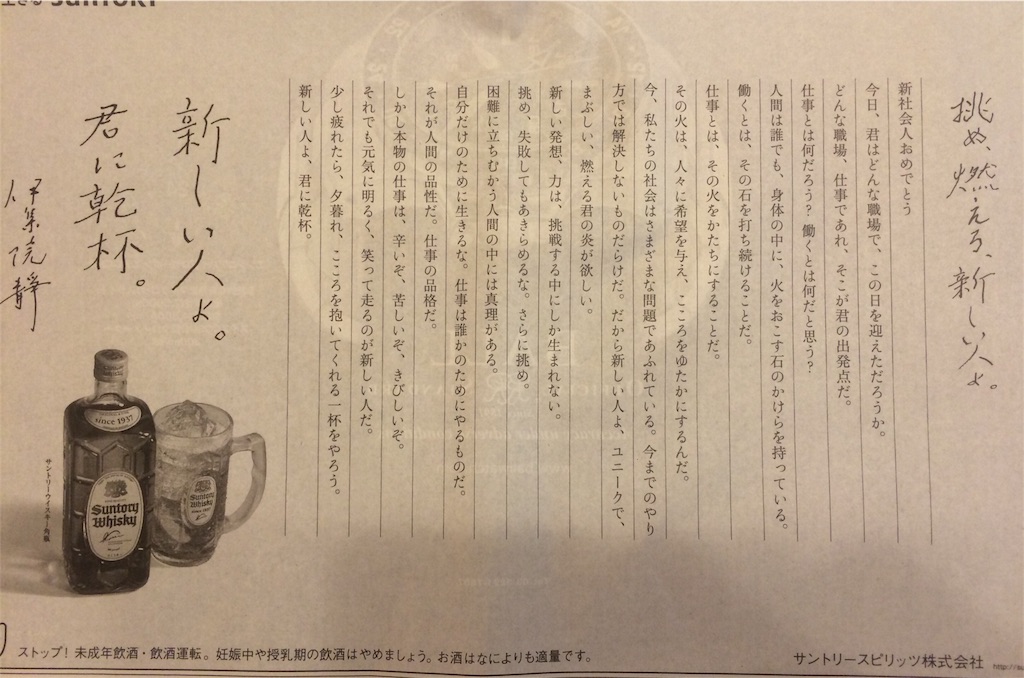 挑め、燃えろ、新しい人よ。
新社会人おめでとう
今日、君はどんな職場で、この日を迎えただろうか。
どんな職場、仕事であれ、そこが君の出発点だ。
仕事とは何だろう？　働くとは何だと思う？
人間は誰でも、身体の中に、火をおこす石のかけらを持っている。
働くとは、その石を打ち続けることだ。
仕事とは、その火をかたちにすることだ。
その火は、人々に希望を与え、こころをゆたかにするんだ。
今、私たちの社会はさまざまな問題であふれている。今までのやり
方では解決しないものだらけだ。だから新しい人よ、ユニークで、
まぶしい、燃える君の炎が欲しい。
新しい発想、力は、挑戦する中にしか生まれない。
挑め、失敗してもあきらめるな。さらに挑め。
困難に立ちむかう人間の中には真理がある。
自分だけのために生きるな。仕事は誰かのためにやるものだ。
それが人間の品性だ。仕事の品格だ。
しかし本物の仕事は、辛いぞ、苦しいぞ、きびしいぞ。
それでも元気に明るく、笑って走るのが新しい人だ。
少し疲れたら、夕暮れ、こころを抱いてくれる一杯をやろう。
新しい人よ、君に乾杯。
新しい人よ。
君に乾杯。
伊集院静
since 1937
Suntory
Whisky
Suntory
Whisky
since 1937
サントリーウイスキー角瓶
ストップ！未成年飲酒・飲酒運転。妊娠中や授乳期の飲酒はやめましょう。お酒はなによりも適量です。
サントリースピリッツ株式会社